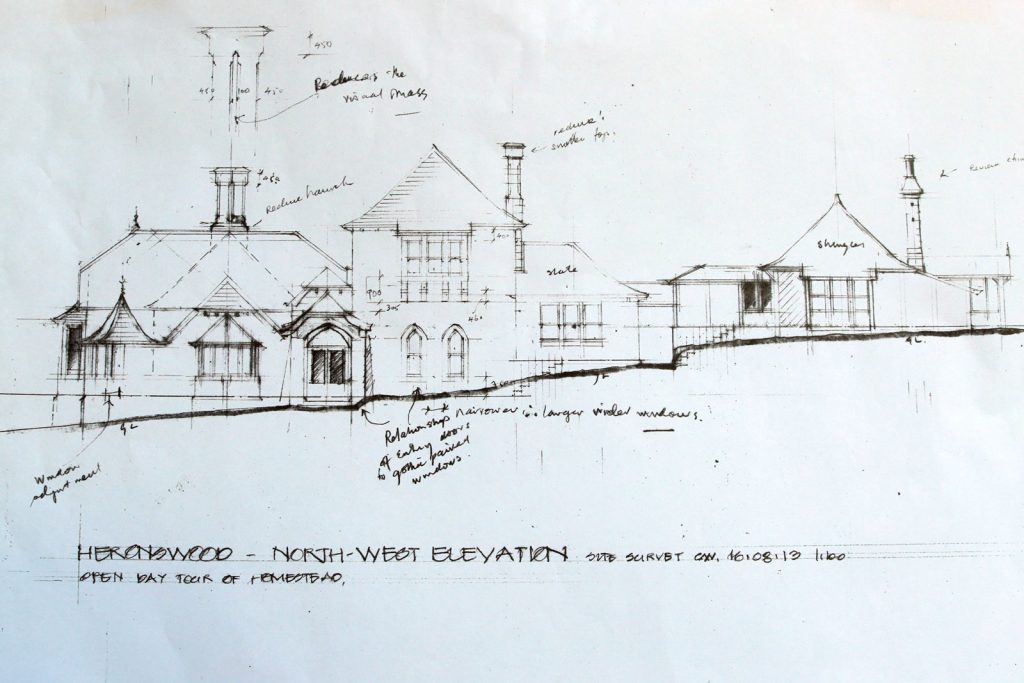 450
450 100 450
Reduces the
visual mass
reduce
smaller top.
Reduce haunch
Review
slate
shingles
400
900
305
GL
GL
GL
** narrower ∴ larger wider windows.
Relationship
of entry doors
to gothic paired
windows.
Window
adjustment
HERONSWOOD - NORTH-WEST ELEVATION SITE SURVEY 16:08:13 1:100
OPEN DAY TOUR OF HOMESTEAD,